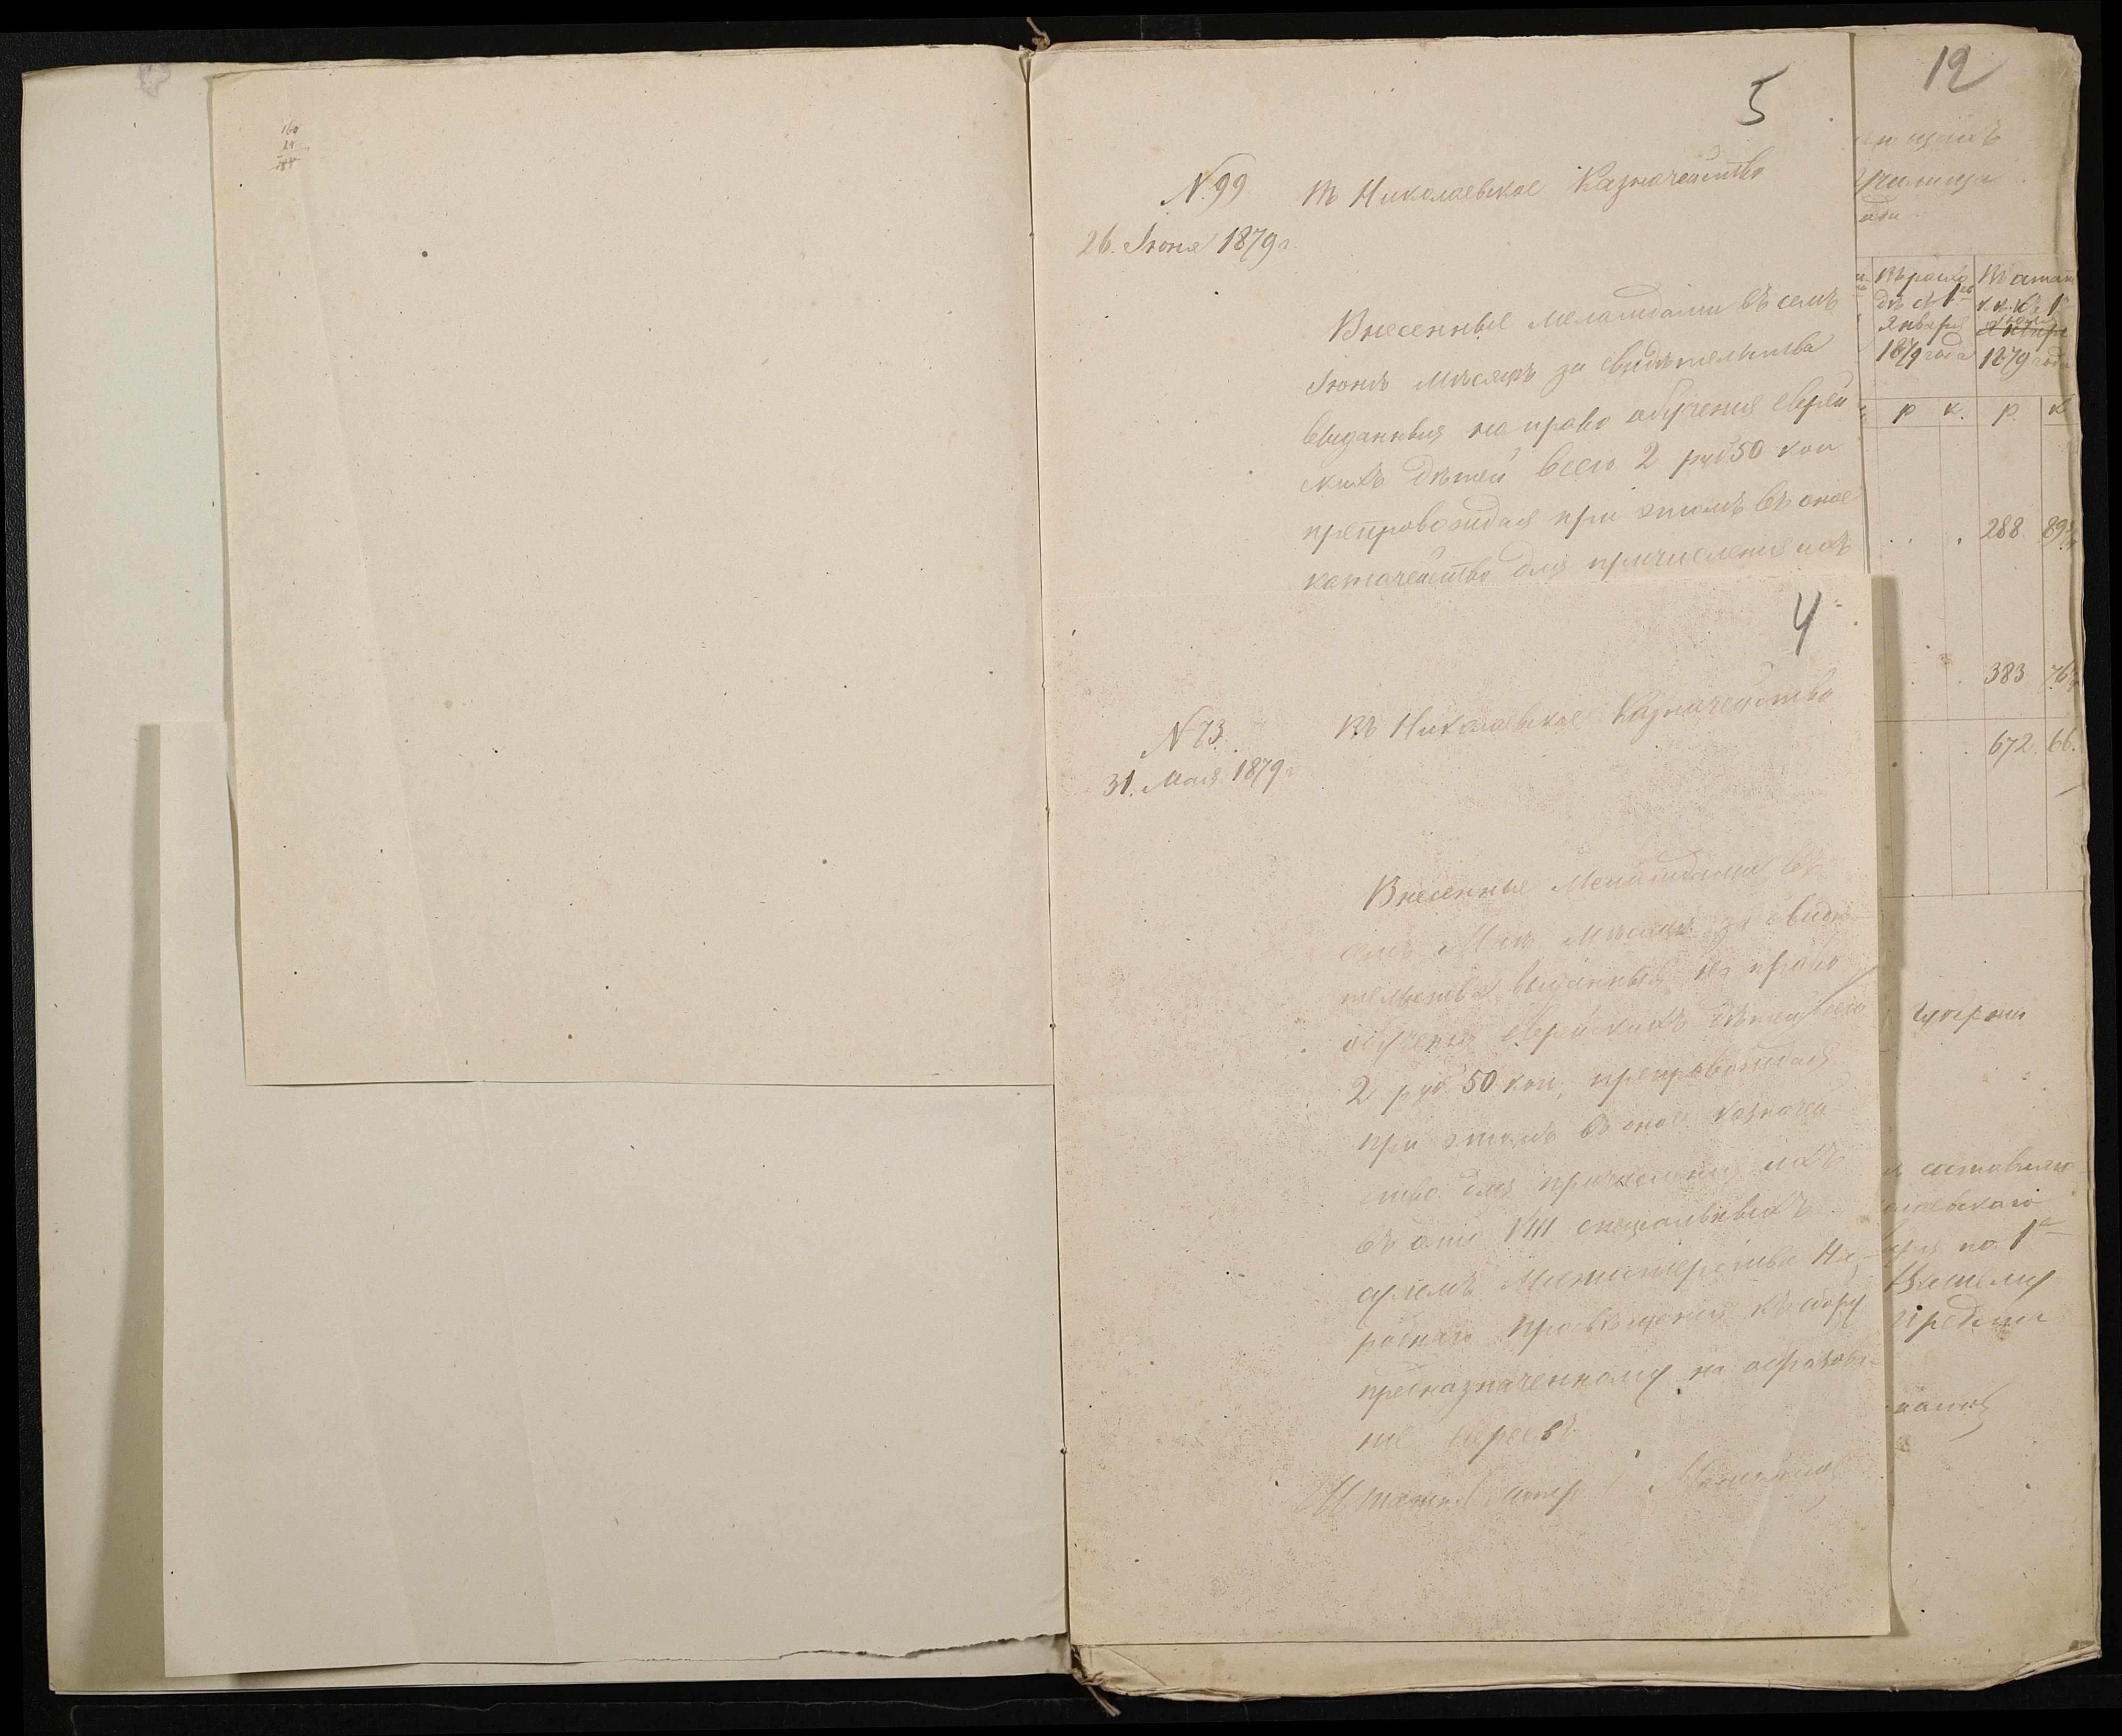 160
24
184
5
N. 99
26. Іюня 1879 г.
Въ Николаевское Казначейство
Внесенные меламдами въ семъ
Іюнѣ мѣсяцѣ за свидѣтельства
выданныя на право обученія еврей
скихъ дѣтей всего 2 руб 50 коп
препровождая при этомъ въ оное
казначейство для причисленія ихъ
4
N 73
31. Мая 1879 г
Въ Николаевское Казначейство
Внесенные Меламдами въ
семъ Маѣ Мѣсяцѣ за свидѣ-
тельства выданныя на право
обученія еврейскихъ дѣтей всего
2 руб 50 коп, препровождая
при этомъ въ оное казначей
ство для причисленія ихъ
въ VIII спеціальныхъ
Министерства На-
роднаго Просвѣщенія къ сбору
предназначенному на образова-
ніе евреевъ
Штатн. Смотр
12
ющихъ
Училища
Въ расхо
дѣ съ 1го
Января
1879 года
Въ остат
к. къ 1
Января
1879 года
р к. р. к
288 89
383 76
672 66.
Губерніи
составляю
олаевскаго
аря по 1е
Вашему